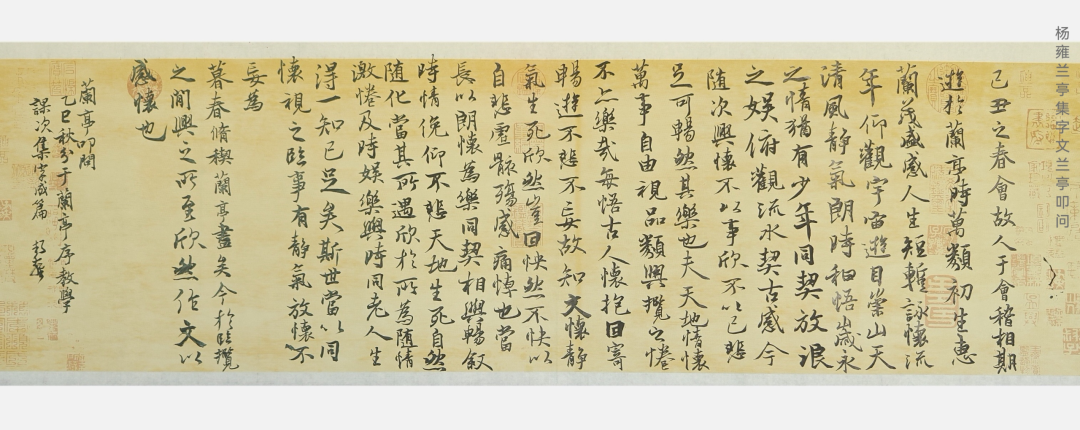 己丑之春會故人于會稽相期
遊於蘭亭時萬類初生惠
蘭茂盛感人生短暫詠懷流
年仰觀宇宙遊目崇山天
清風靜氣朗時和悟歲永
之情猶有少年同契放浪
之娛俯觀流水契古感今
隨次興懷不以事欣不以己悲
足可暢然其樂也夫天地情懷
萬事自由視品類興攬之惓
不亦樂哉每悟古人懷抱回寄
暢遊不悲不妄故知文懷靜
氣生死欣然豈回怏然不快以
自悲虛骸殤感痛悼也當
長以朗懷為樂同契相與暢敘
時情俛仰不悲天地生死自然
隨化當其所遇欣於所為隨情
激惓及時娛樂與時同老人生
得一知己足矣斯世當以同
懷視之臨事有靜氣放懷不
妄為
暮春脩稧蘭亭盡矣今於臨攬
之間興之所至欣然作文以
感懷也
蘭亭叩問
乙巳秋分于蘭亭序教學
課次集字成篇 楊雍
杨雍兰亭集字文兰亭叩问